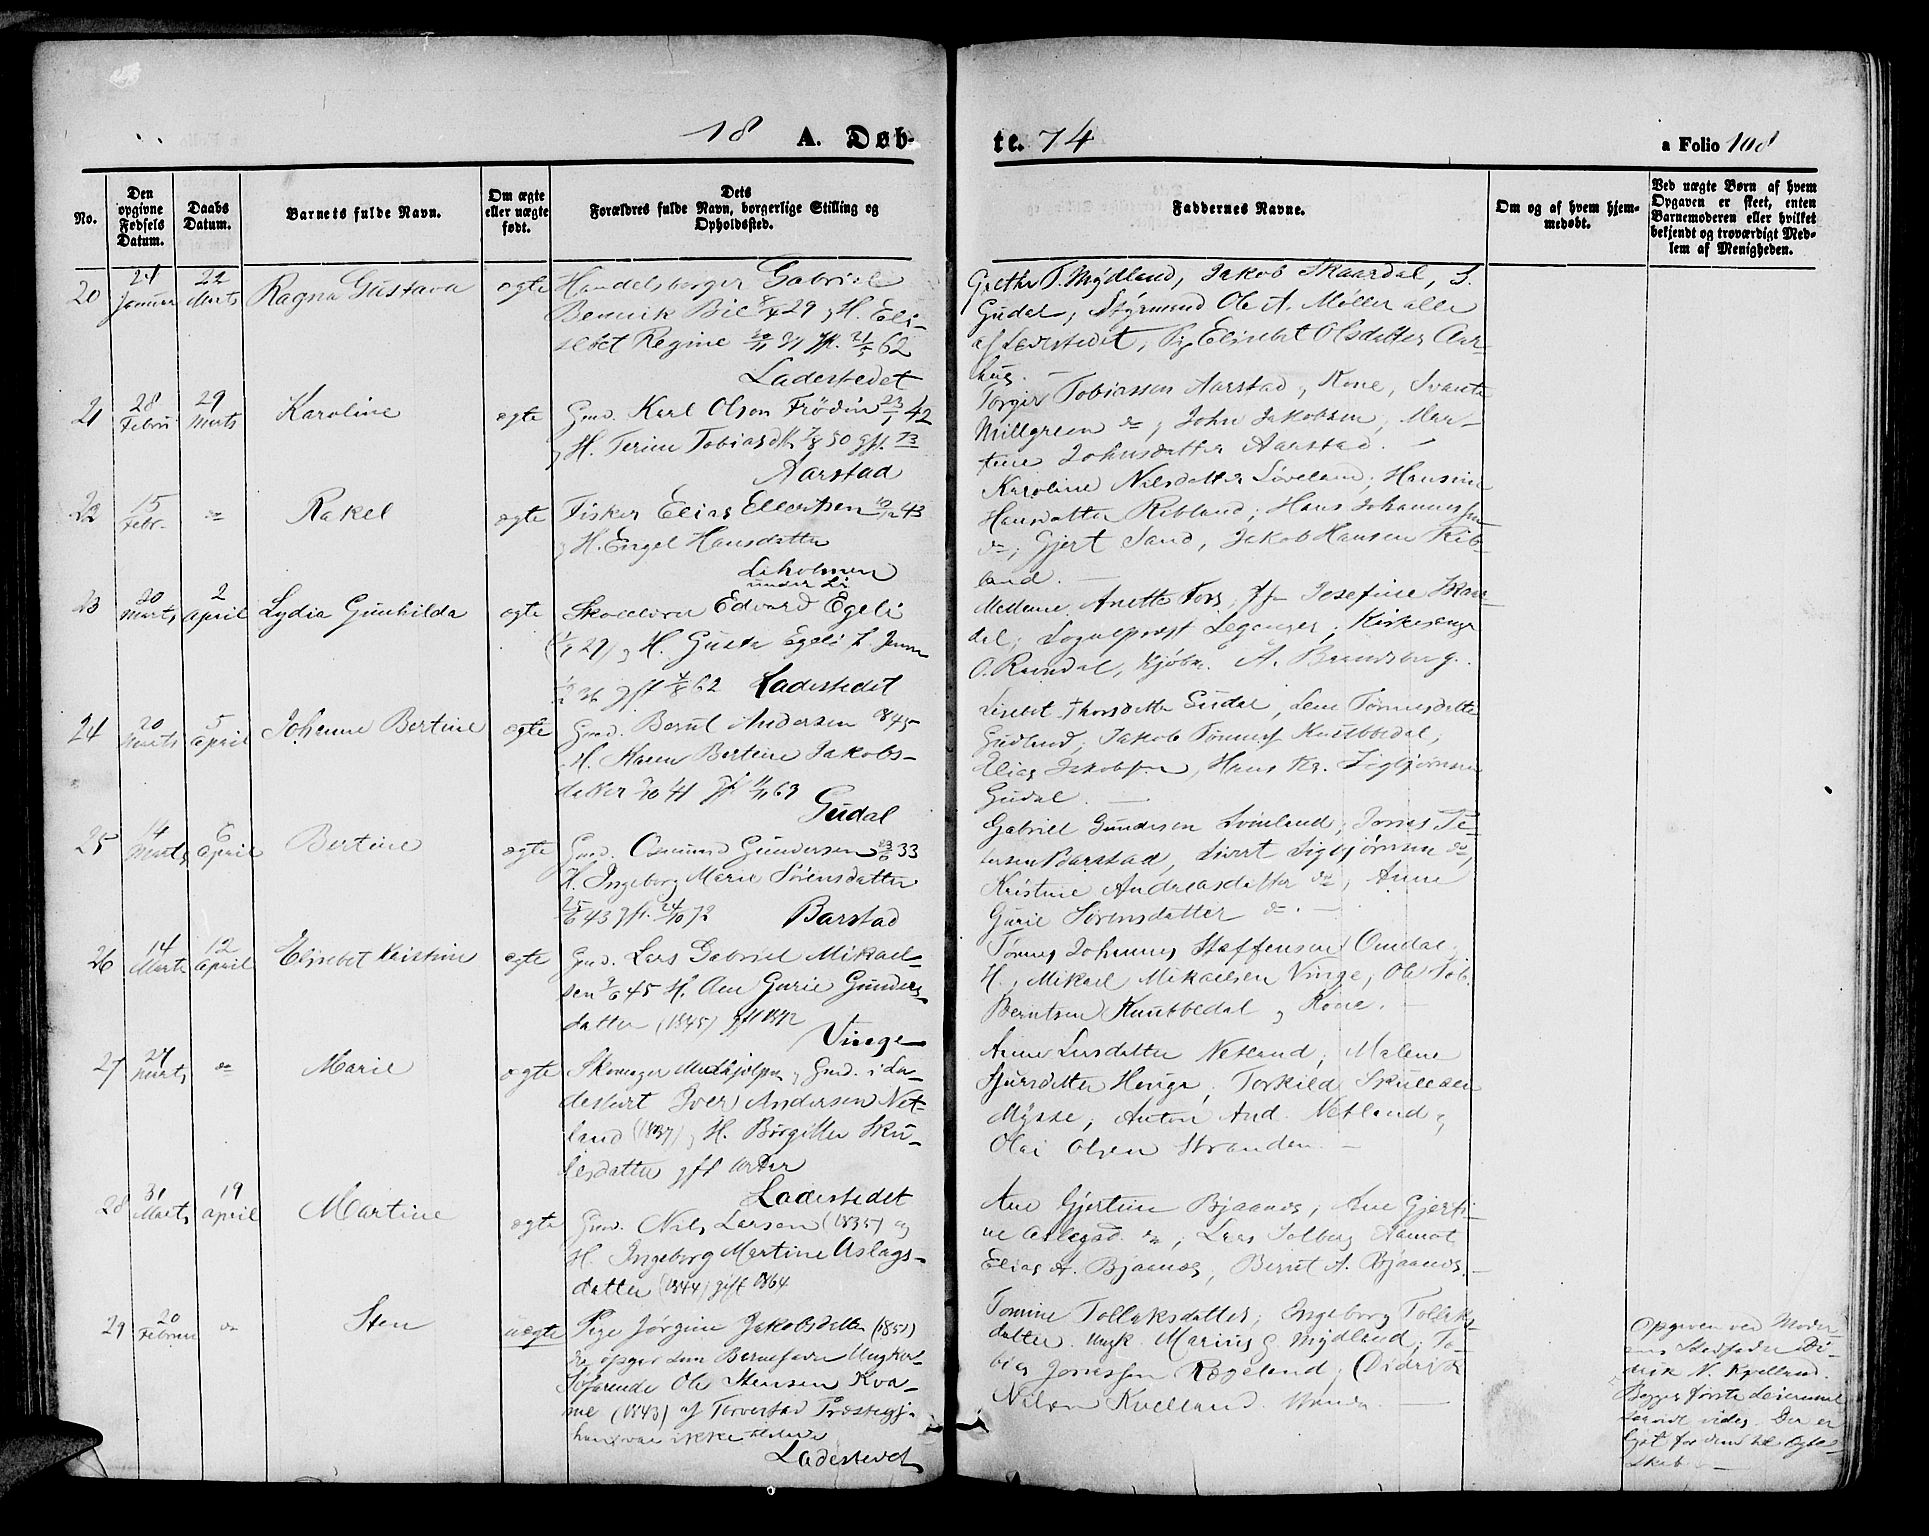 18 A. Døb-
te. 74
a Folio 108
No.
Den opgivne Fødsels Datum.
Daabs Datum.
Barnets fulde Navn.
Om ægte eller uægte født.
Dets Forældres fulde Navn, borgerlige Stilling og Opholdssted.
Faddernes Navne.
Om og af hvem hjemmedøbt.
Ved uægte Børn af hvem Opgaven er skeet, enten Barnemoderen eller hvilket bekjendt og troværdigt Medlem af Menigheden.
20 Januar 22 Marts Ragna Gustava ægte Handelsborger Gabriel
29, H. Eli-
sebet Regine 62
Ladestedet
Grethe T. Mydland, Jakob Skaardal, S.
Gudal, Styrmand Ole A. Møller alle
af Ladestedet, Pig Elisebet Olsdatter Aar-
hus.
21 28 Febru 29 Marts Karoline ægte Gmd. Karl Olson Frödin 42
H. Terine Tobiasdtr. 50 gft. 73
Aarstad
Torgir Tobiassen Aarstad, Kone, Svante
Millgreen do, John Jakobsen, Mar-
tine Johnsdatter Aarstad.
22 15 Febr. do Rakel ægte Fisker Elias Ellertsen 43
H. Engel Hansdatter
Liholmen
under Li
Karoline Nilsdatter Løveland, Hansine
Hansdatter Ribland, Hans Johannessen
do, Gjert Sand, Jakob Hansen Rib-
land.
23 20 Marts 2 April Lydia Gunhilda ægte Skolelærer Edvard Egeli
29) H. Gusta Egeli f. Jensen
36 gft 62 Ladestedet
Madame Anette Fors, Josefine Skaar-
dal, Sogneprest Leganger, Kirkesanger
O. Rundal, Kjøbm. A. Brandsberg.
24 20 Marts 5 April Johanne Bertine ægte Gmd. Berul Andersen 45
H. Karen Bertine Jakobs-
datter 41 gft 63
Gudal
Lisebet Thorsdatter Gudal, Lene Tønnesdatter
Gudland, Jakob Tønnes Knubbedal,
Elias Jakobsen, Hans Kr. Sigbjørnsen
Gudal.
25 14 Marts 6 April Bertine ægte Gmd. Osmund Gundersen 33
H. Ingeborg Marie Sørensdatter
43 gft. 72 Barstad
Gabriel Gundersen Svinland, Jonas Pe-
tersen Barstad, Sivert Sigbjørnsen do,
Kristine Andreasdatter do, Anne
Gurie Sørensdatter do.
26 14 Marts 12 April Elisebet Kristine ægte Gmd. Lars Gabriel Mikael-
sen 45 H. Ane Gurie Gunders-
datter (1845) gft 1872
Vinge
Tønnes Johannes Staffensen Omdal,
H., Mikael Mikaelsen Vinge, Ole Tob.
Berntsen Knubbedal, Kone.
27 27 Marts do Marie ægte Skomager Gmd. i La-
destedet Iver Andersen Net-
land (1837), H. Birgitte Sku-
lesdatter gft
Ladestedet
Anne Larsdatter Netland, Malene
Sjursdatter Hauge, Torkild Skulesen
Mysse, Anton And. Netland,
Olai Olsen Stranden.
28 31 Marts 19 April Martine ægte Gmd. Nils Larsen (1835) og
H. Ingeborg Martine Aslags-
datter (1844) gift 1864
Ane Gjertine Bjaanes, Ane Gjerti-
ne Aslagsd. do, Lars Solberg Aamot
Elias A. Bjaanes, Berul A. Bjaanes.
29 20 Februar do Sten uægte Pige Jørgine Jakobsdatter (1851)
der opgav som Barnefader Ungkarl
Søfarende Ole Stensen Kva-
me (1843) af Torvestad Præstegj.
han var ikke tilstede
Ladestedet
Tomine Tollaksdatter, Ingeborg Tollaks-
datter, Ungk. Marius G. Mydland, To-
bias Jonassen Rægeland, Didrik
Nilsen Kvelland.
Opgaven ved Moder-
ens Stedfader Di-
drik N. Kvelland.
Begges første Leiermaal
saavidt vides. Der er
lyst for dem til Ægte-
skab.